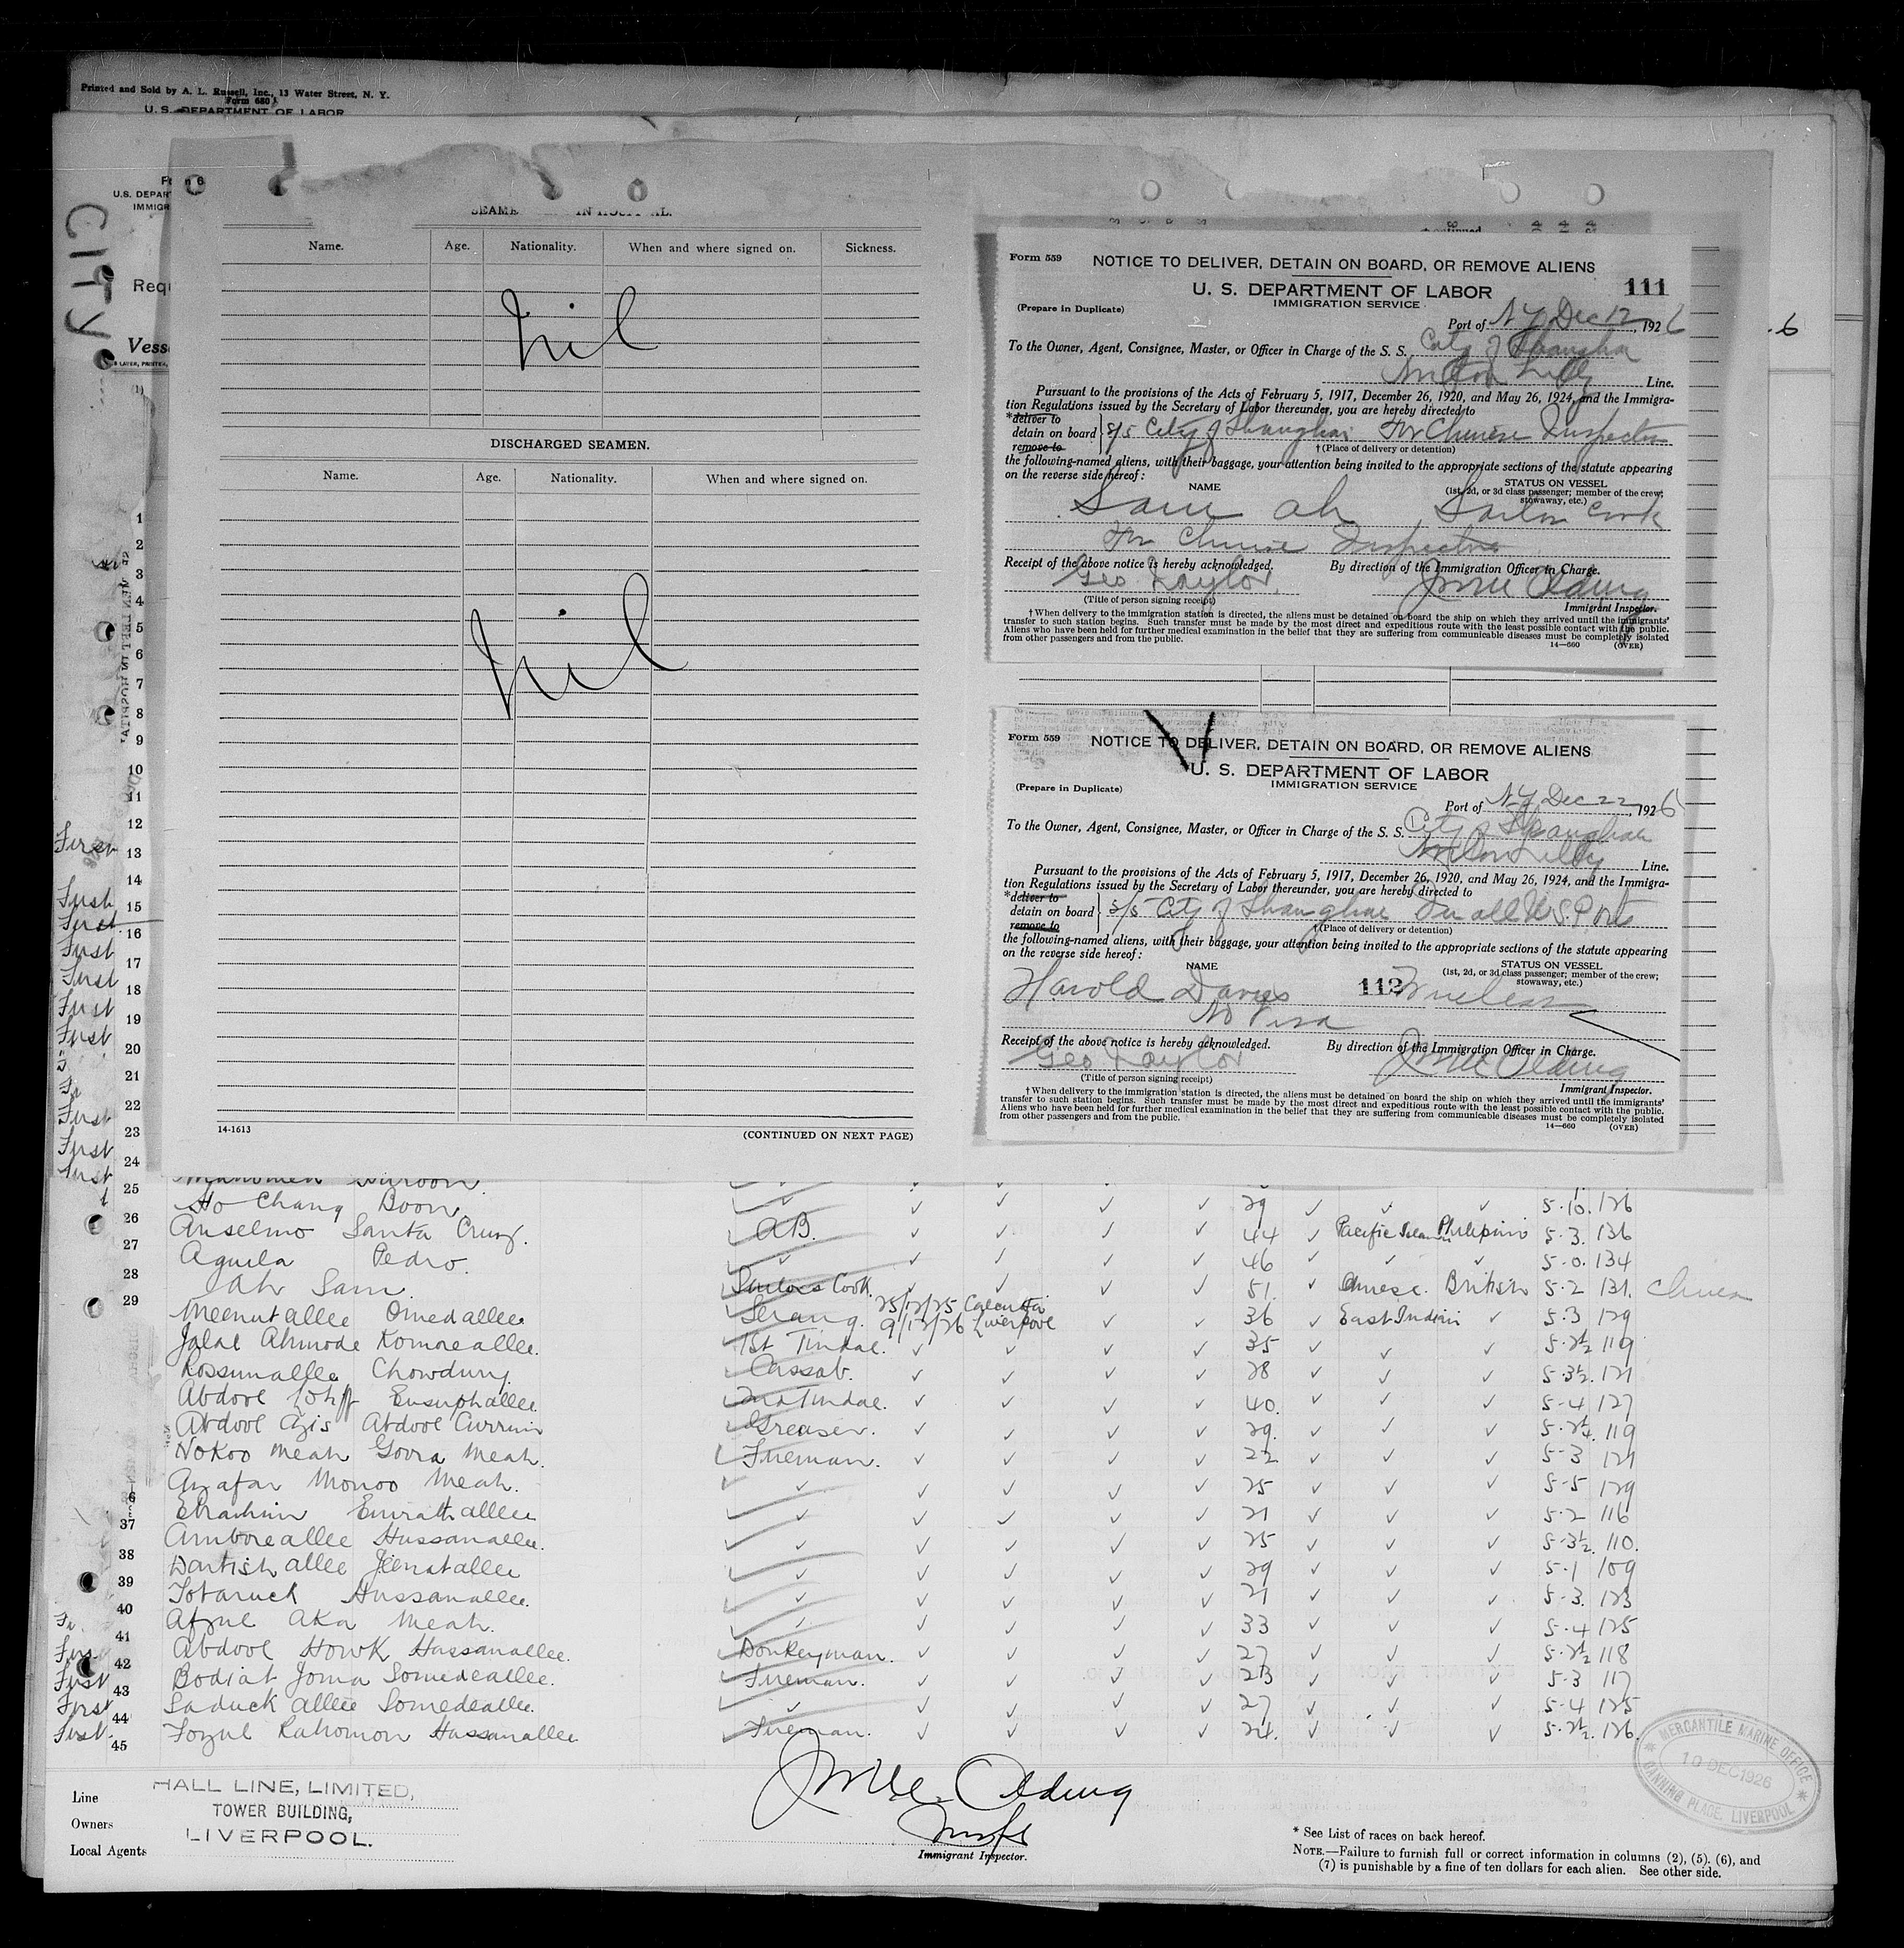 Printed and Sold by A. L. Russell, Inc., 13 Water Street, N. Y.
Form 680
U. S. DEPARTMENT OF LABOR
U.S. DEPAR
IMMIGR
CITY
Requ
Vess
IN HOSPITAL.
Name. Age. Nationality. When and where signed on. Sickness.
Nil
DISCHARGED SEAMEN.
Name. Age. Nationality. When and where signed on.
Nil
14-1613
(CONTINUED ON NEXT PAGE)
Form 559
NOTICE TO DELIVER, DETAIN ON BOARD, OR REMOVE ALIENS
U. S. DEPARTMENT OF LABOR
111
IMMIGRATION SERVICE
(Prepare in Duplicate)
Port of N Y Dec 12, 1926
To the Owner, Agent, Consignee, Master, or Officer in Charge of the S. S. City of Shanghai
Norton Lilly Line.
Pursuant to the provisions of the Acts of February 5, 1917, December 26, 1920, and May 26, 1924, and the Immigra-
tion Regulations issued by the Secretary of Labor thereunder, you are hereby directed to
*deliver to
detain on board s/s City of Shanghai For Chinese Inspector
remove to
†(Place of delivery or detention)
the following-named aliens, with their baggage, your attention being invited to the appropriate sections of the statute appearing
on the reverse side hereof:
NAME
STATUS ON VESSEL
(1st, 2d, or 3d class passenger; member of the crew;
stowaway, etc.)
Sam ah Sailor Cook
For Chinese Inspector
Receipt of the above notice is hereby acknowledged. By direction of the Immigration Officer in Charge.
Geo Taylor
(Title of person signing receipt)
Immigrant Inspector.
†When delivery to the immigration station is directed, the aliens must be detained on board the ship on which they arrived until the immigrants'
transfer to such station begins. Such transfer must be made by the most direct and expeditious route with the least possible contact with the public.
Aliens who have been held for further medical examination in the belief that they are suffering from communicable diseases must be completely isolated
from other passengers and from the public.
14—660 (OVER)
Form 559
NOTICE TO DELIVER, DETAIN ON BOARD, OR REMOVE ALIENS
U. S. DEPARTMENT OF LABOR
IMMIGRATION SERVICE
(Prepare in Duplicate)
Port of N Y Dec 22, 1926
To the Owner, Agent, Consignee, Master, or Officer in Charge of the S. S. City of Shanghai
Norton Lilly Line.
Pursuant to the provisions of the Acts of February 5, 1917, December 26, 1920, and May 26, 1924, and the Immigra-
tion Regulations issued by the Secretary of Labor thereunder, you are hereby directed to
*deliver to
detain on board s/s City of Shanghai In all U.S. Ports
remove to
†(Place of delivery or detention)
the following-named aliens, with their baggage, your attention being invited to the appropriate sections of the statute appearing
on the reverse side hereof:
NAME
STATUS ON VESSEL
(1st, 2d, or 3d class passenger; member of the crew;
stowaway, etc.)
Harold Davies 112 Wireless
No Visa
Receipt of the above notice is hereby acknowledged. By direction of the Immigration Officer in Charge.
Geo Taylor
(Title of person signing receipt)
Immigrant Inspector.
†When delivery to the immigration station is directed, the aliens must be detained on board the ship on which they arrived until the immigrants'
transfer to such station begins. Such transfer must be made by the most direct and expeditious route with the least possible contact with the public.
Aliens who have been held for further medical examination in the belief that they are suffering from communicable diseases must be completely isolated
from other passengers and from the public.
14—660 (OVER)
25 Ho Chang Boon 29 5.10. 126
26 Anselmo Santa Cruz. A.B. 44 Pacific Islander Philipino 5.3. 136
27 Aquila Pedro. 46 5.0. 134
28 Jah Sam. Sailors Cook. 51. Chinese. British 5.2 131. China
29 Meenutallee Omedallee Serang. 25/12/25 Calcutta 9/12/26 Liverpool 36 East Indian 5.3 129
Jalal Ahmode Komoreallee. 1st Tindal. 35 5.2½ 119
Rossunallee Chowdury Cassab. 28 5.3½. 121
Abdool Ensuphallee 2nd Tindal. 40. 5-4 127
Abdool Azis Abdool Currim Greaser. 29. 119
Nokoo Meah Goora Meah. Fireman. 22 5-3 121
Azafar Monoo Meah. 25 5-5 129
Ebrahim Emrathallee 21 5.2 116
37 Amboreallee Hussanallee. 25 5.3½. 110.
38 Dantishallee Jeenatallee 29 5.1 109
39 Totaruck Hussanallee. 21 5-3. 123
40 Afzul Aka Meah. 33 5.4 125
41 Abdool Howk Hassanallee. Donkeyman. 27 5.2½ 118
42 Bodiat Joma Somedeallee. Fireman. 23 5.3 117
43 Saduck allee Somedeallee. 27 5-4 125
44 Fozul Rahomon Hassanallee Fireman. 24. 5.2½. 126.
45
Line HALL LINE, LIMITED,
Owners TOWER BUILDING,
Local Agents LIVERPOOL.
Immigrant Inspector.
MERCANTILE MARINE OFFICE
10 DEC 1926
CANNING PLACE, LIVERPOOL
* See List of races on back hereof.
NOTE.—Failure to furnish full or correct information in columns (2), (5). (6), and
(7) is punishable by a fine of ten dollars for each alien. See other side.